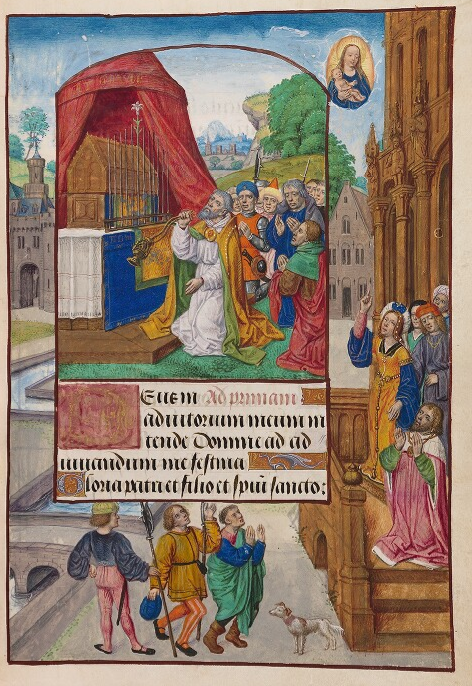 DEus in Ad primam
adiutorium meum in
tende Domine ad ad
iuuandum me festina
Gloria patri et filio et spūi sancto: